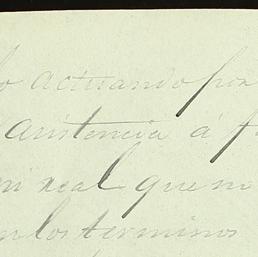 lo actuando por
asistencia á f
ni real que no
en los terminos